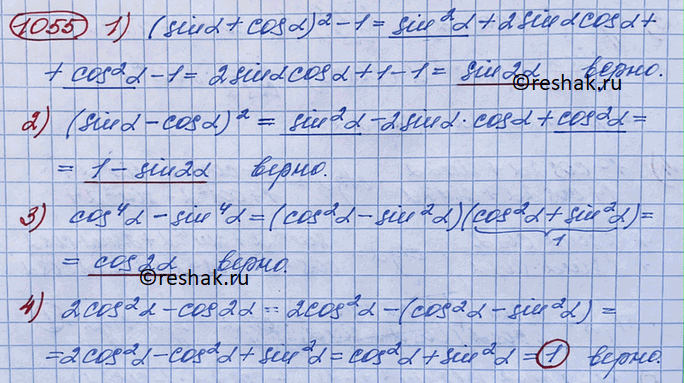 1055 1) (sinα + cosα)² - 1 = sin²α + 2sinαcosα +
+ cos²α - 1 = 2sinαcosα + 1 - 1 = sin2α верно.
©reshak.ru
2) (sinα - cosα)² = sin²α - 2sinα · cosα + cos²α =
= 1 - sin2α верно.
3) cos⁴α - sin⁴α = (cos²α - sin²α)(cos²α + sin²α) =
1
= cos2α верно.
©reshak.ru
4) 2cos²α - cos2α = 2cos²α - (cos²α - sin²α) =
= 2cos²α - cos²α + sin²α = cos²α + sin²α = 1 верно.